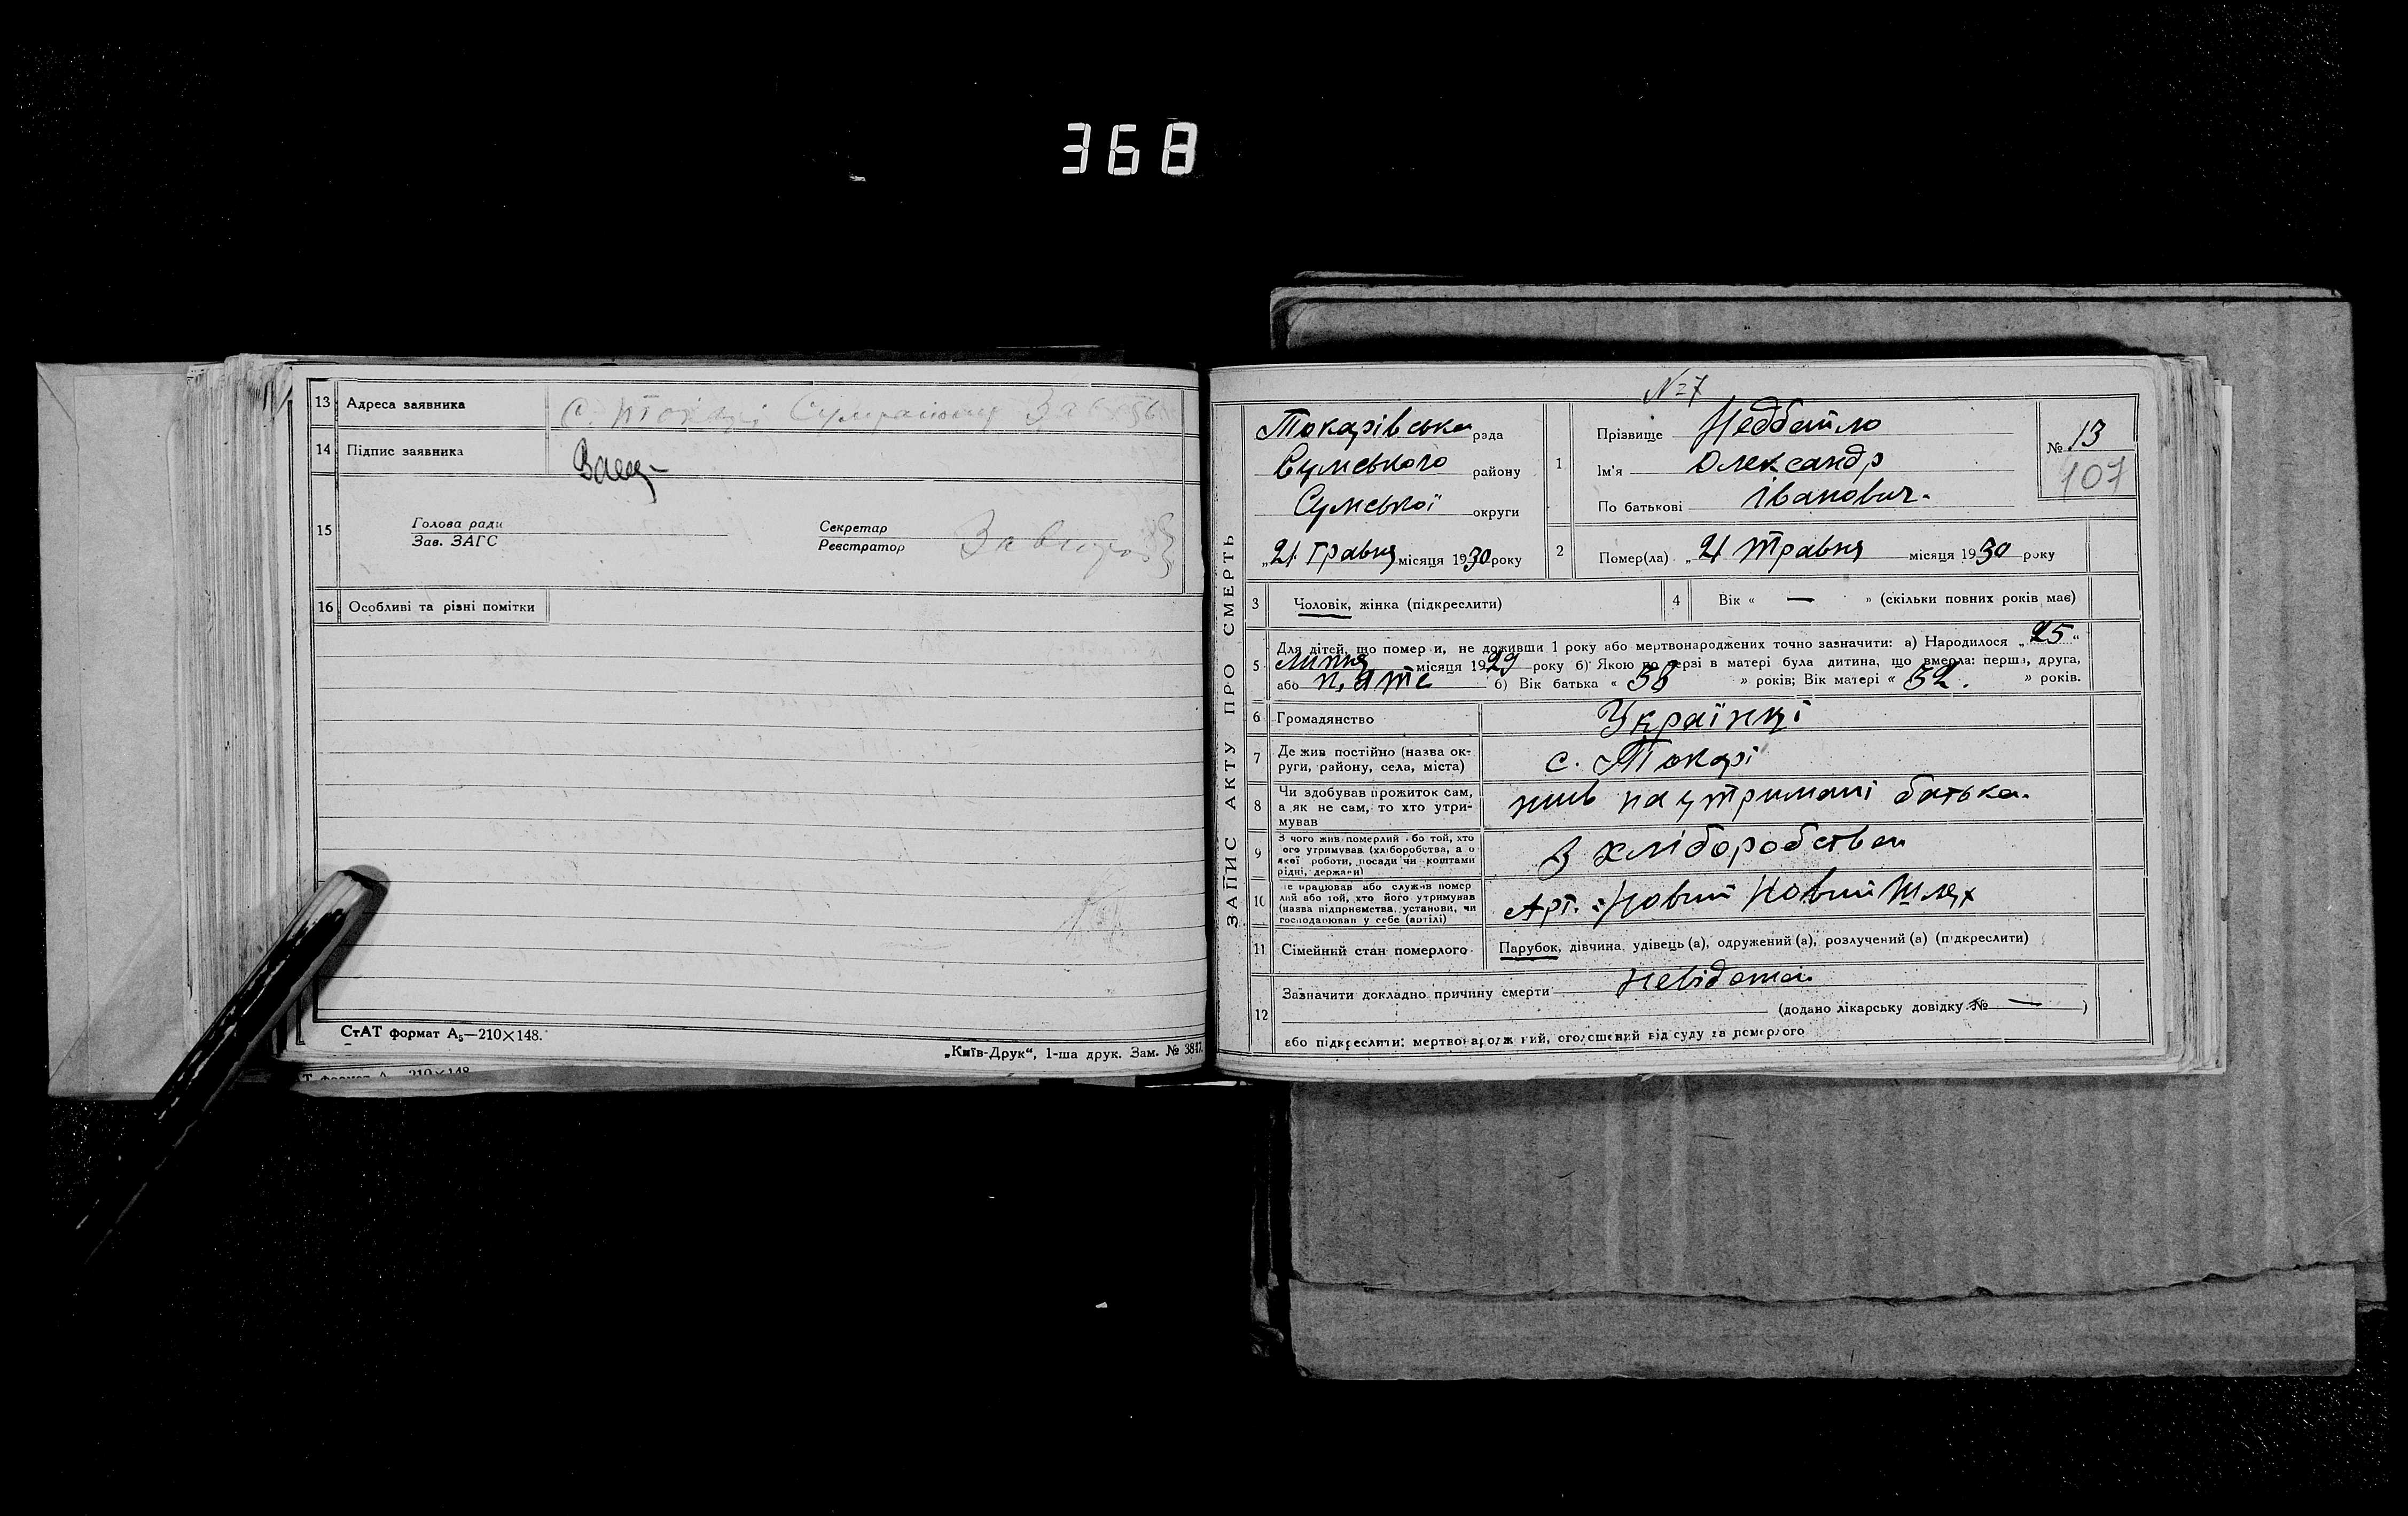 368
13 Адреса заявника с. Токарі Сумрайону
14 Підпис заявника
15 Голова ради
Зав. ЗАГС
Секретар
Реєстратор
16 Особливі та різні помітки
СтАТ формат А₅—210×148.
„Київ-Друк“, 1-ша друк. Зам. № 3847.
ЗАПИС АКТУ ПРО СМЕРТЬ
№ 7
Токарівська рада
Сумського району
Сумської округи
„21 Травня місяця 1930 року
1 Прізвище Неддбайло
Ім'я Олександр
По батькові Іванович.
№ 13
107
2 Помер(ла) „21 Травня місяця 1930 року
3 Чоловік, жінка (підкреслити)
4 Вік « — » (скільки повних років має)
5 Для дітей, що померли, не доживши 1 року або мертвонароджених точно зазначити: а) Народилося „25“
липня місяця 1929 року б) Якою по черзі в матері була дитина, що вмерла: перша, друга,
або п'яте б) Вік батька « 38 » років; Вік матері « 32. » років.
6 Громадянство Українці
7 Де жив постійно (назва ок-
руги, району, села, міста) с. Токарі
8 Чи здобував прожиток сам,
а як не сам, то хто утри-
мував жив на утримані батька.
9 З чого жив померлий або той, хто
його утримував (хліборобства, а о
якої роботи, посади чи коштами
рідні, держави) З хліборобства
10 Де працював або служив помер
лий або той, хто його утримував
(назва підприємства, установи, чи
господарював у себе (артілі) Арт. Новий Новий Шлях
11 Сімейний стан померлого Парубок, дівчина, удівець (а), одружений (а), розлучений (а) (підкреслити)
12 Зазначити докладно причину смерти Невідома
(додано лікарську довідку № — )
або підкреслити: мертвонароджений, оголошений від суду за померлого